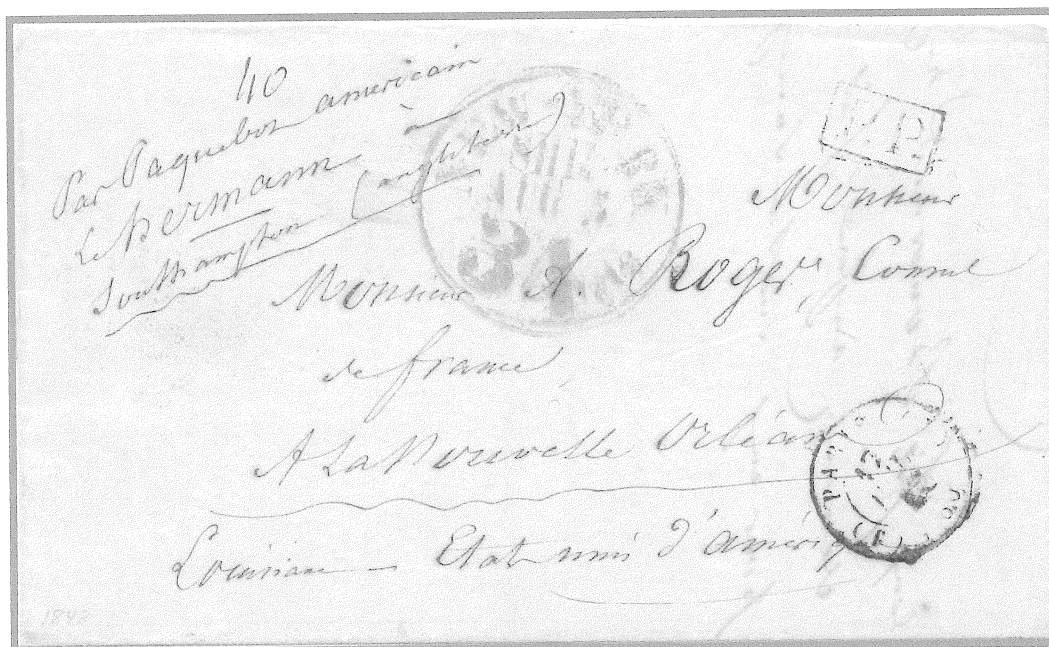 40
Par Paquebot américain
Le Hermann à
Southampton (angleterre)
P.P.
Monsieur
Monsieur A. Roger, Consul
de france
A La Nouvelle Orléans
Louisiane - Etat unis d'amérique
PARIS
12
(E)
60
1848